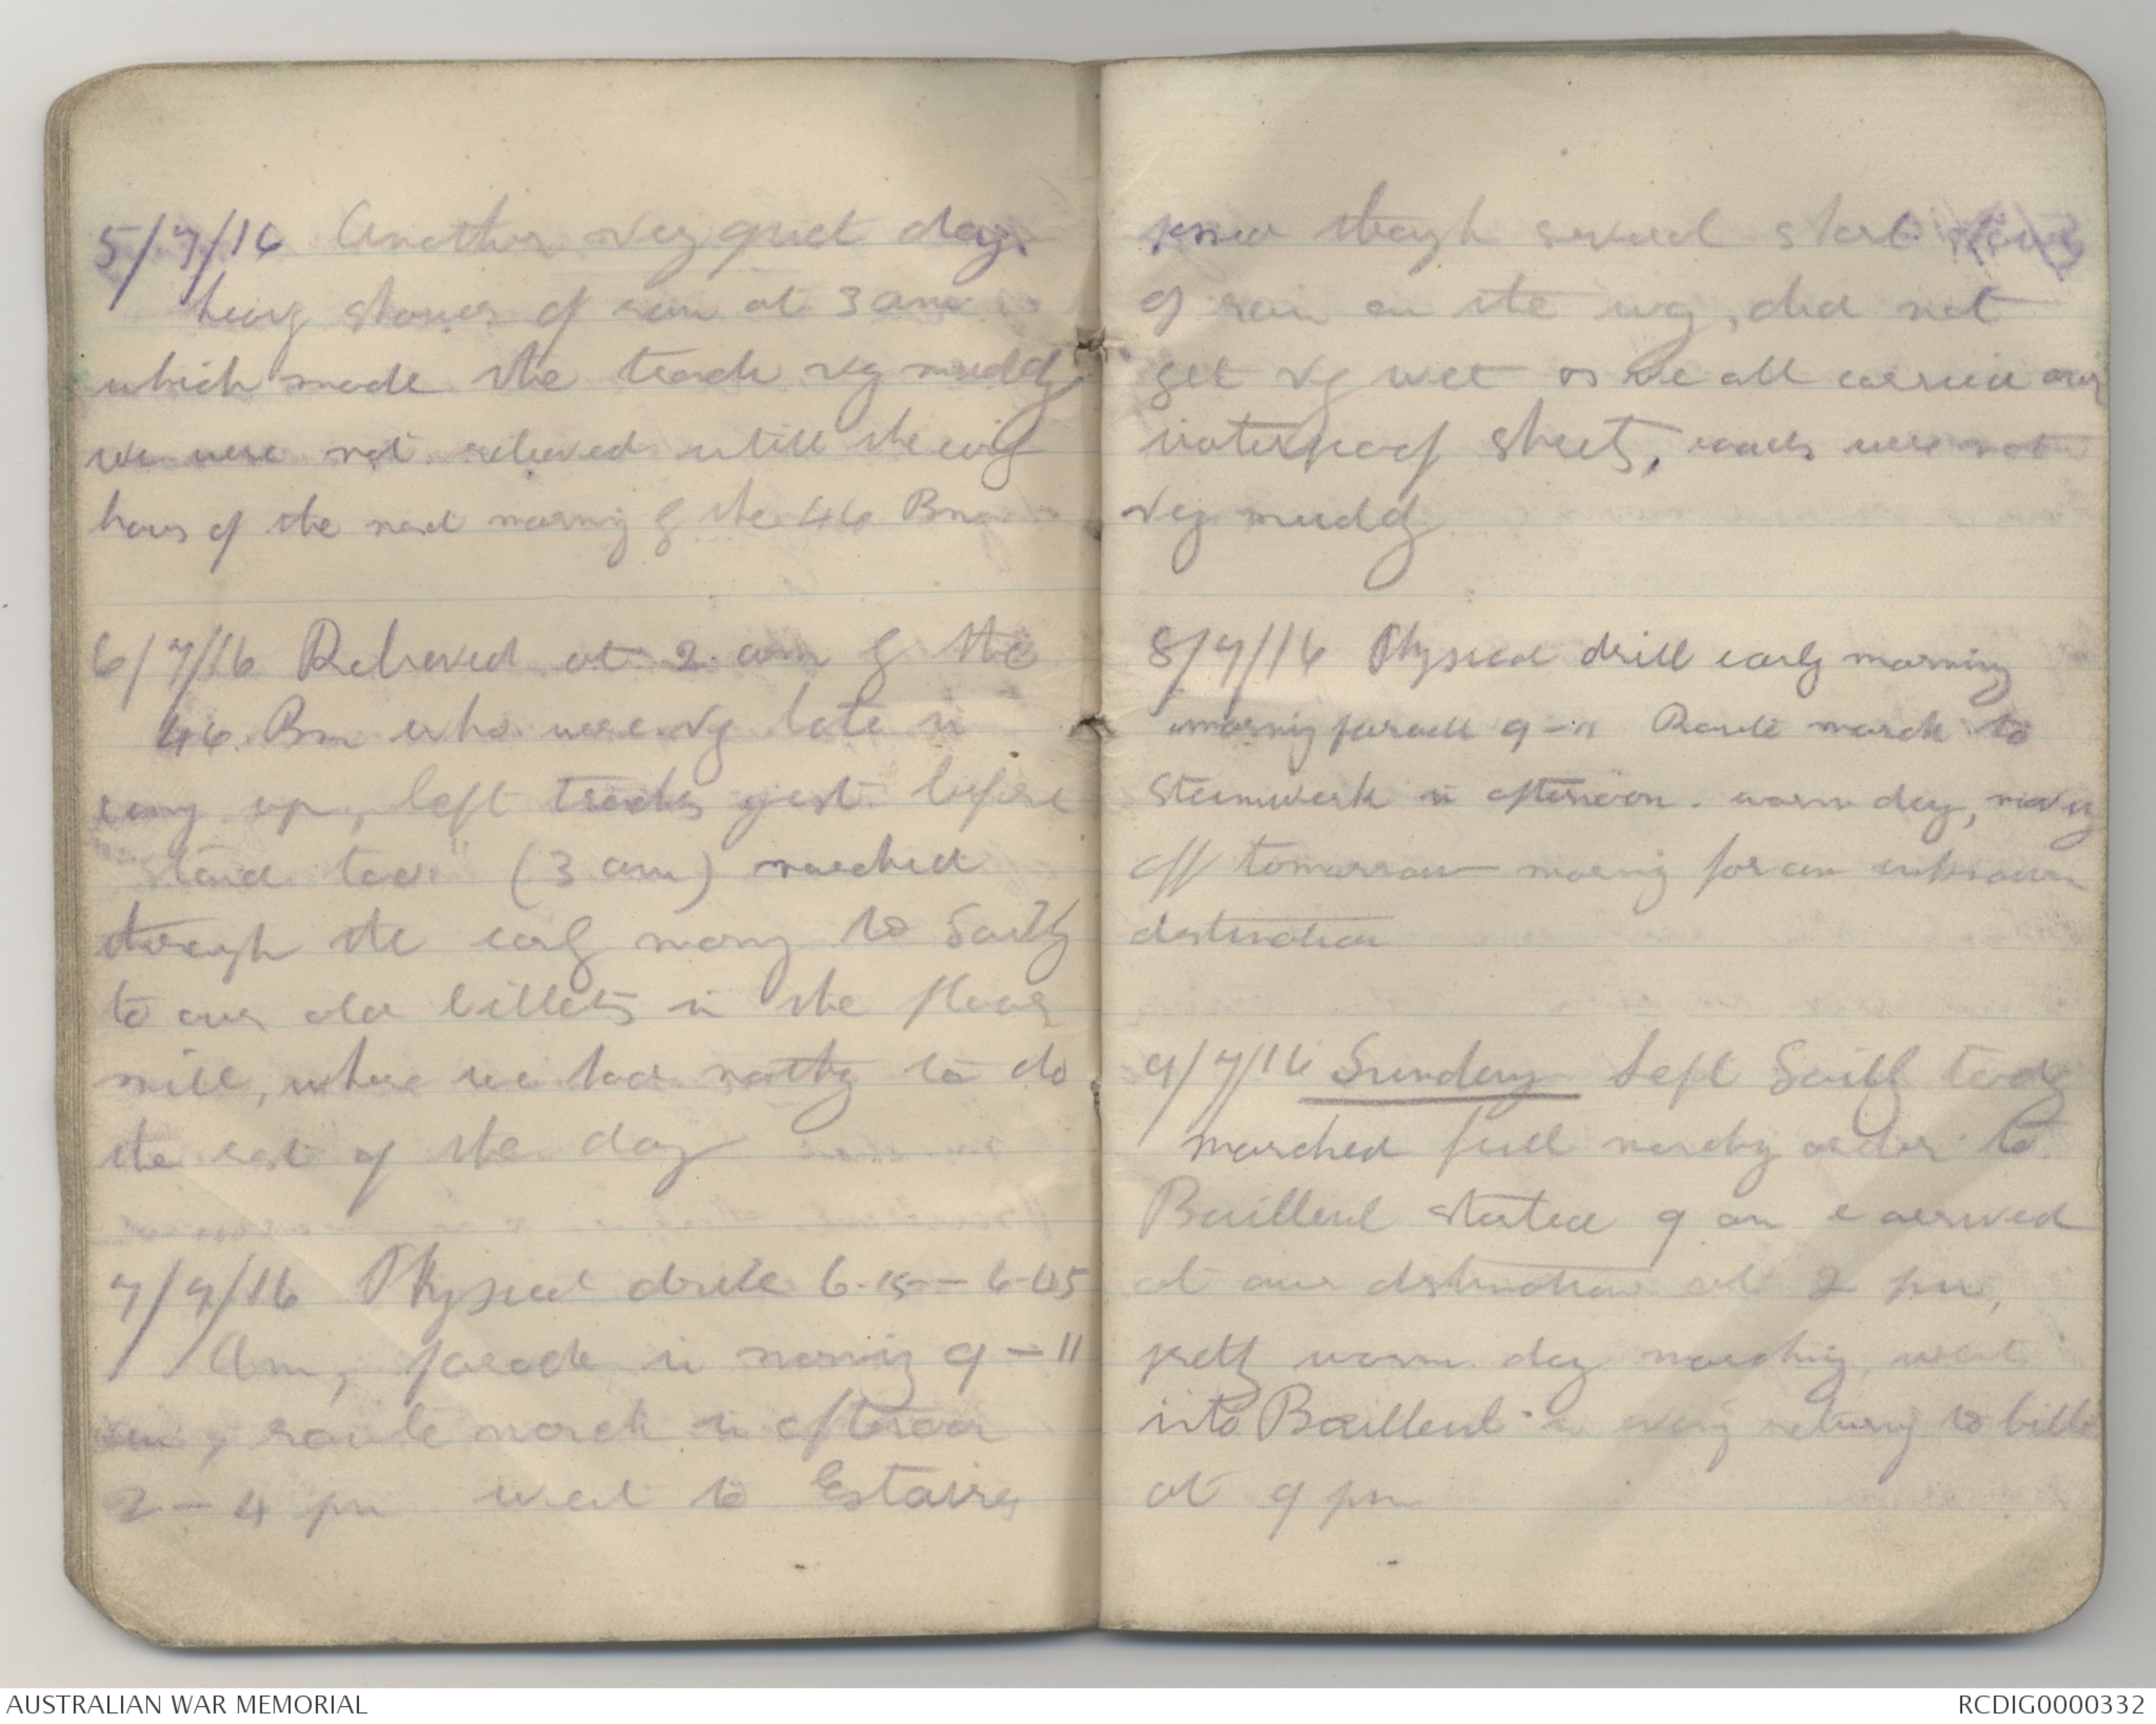 5/7/16 Another very quiet day.
heavy shower of rain at 3 am
which made the trench vy muddy
we were not relieved untill the early
hours of the next morning by the 46 Bn
6/7/16 Relieved at 2 am by the
46 Bn who were vy late in
coming up, left trenches just before
"stand too" (3 am) marched
through the early morng to Sailly
to our old billets in the flour
mill, where we had nothg to do
the rest of the day
7/7/16 Physical drill 6.15 - 6.45
Am, parade in morning 9 - 11
am, route march in afternoon
2 - 4 pm went to Estaires
through several short
of rain on the way, did not
get vy wet as we all carried our
waterproof sheets, roads were
very muddy
8/7/16 Physical drill early morning
morning parade 9 - 11 Route march to
Steenwerk in afternoon. warm day, moving
off tomorrow morning for an unknown
destination
9/7/16 Sunday Left Sailly today
marched full marchg order to
Bailleul started 9 am & arrived
at our destination at 2 pm,
pretty warm day marching, went
into Bailleul in eveng returng to billet
at 9 pm
AUSTRALIAN WAR MEMORIAL
RCDIG0000332